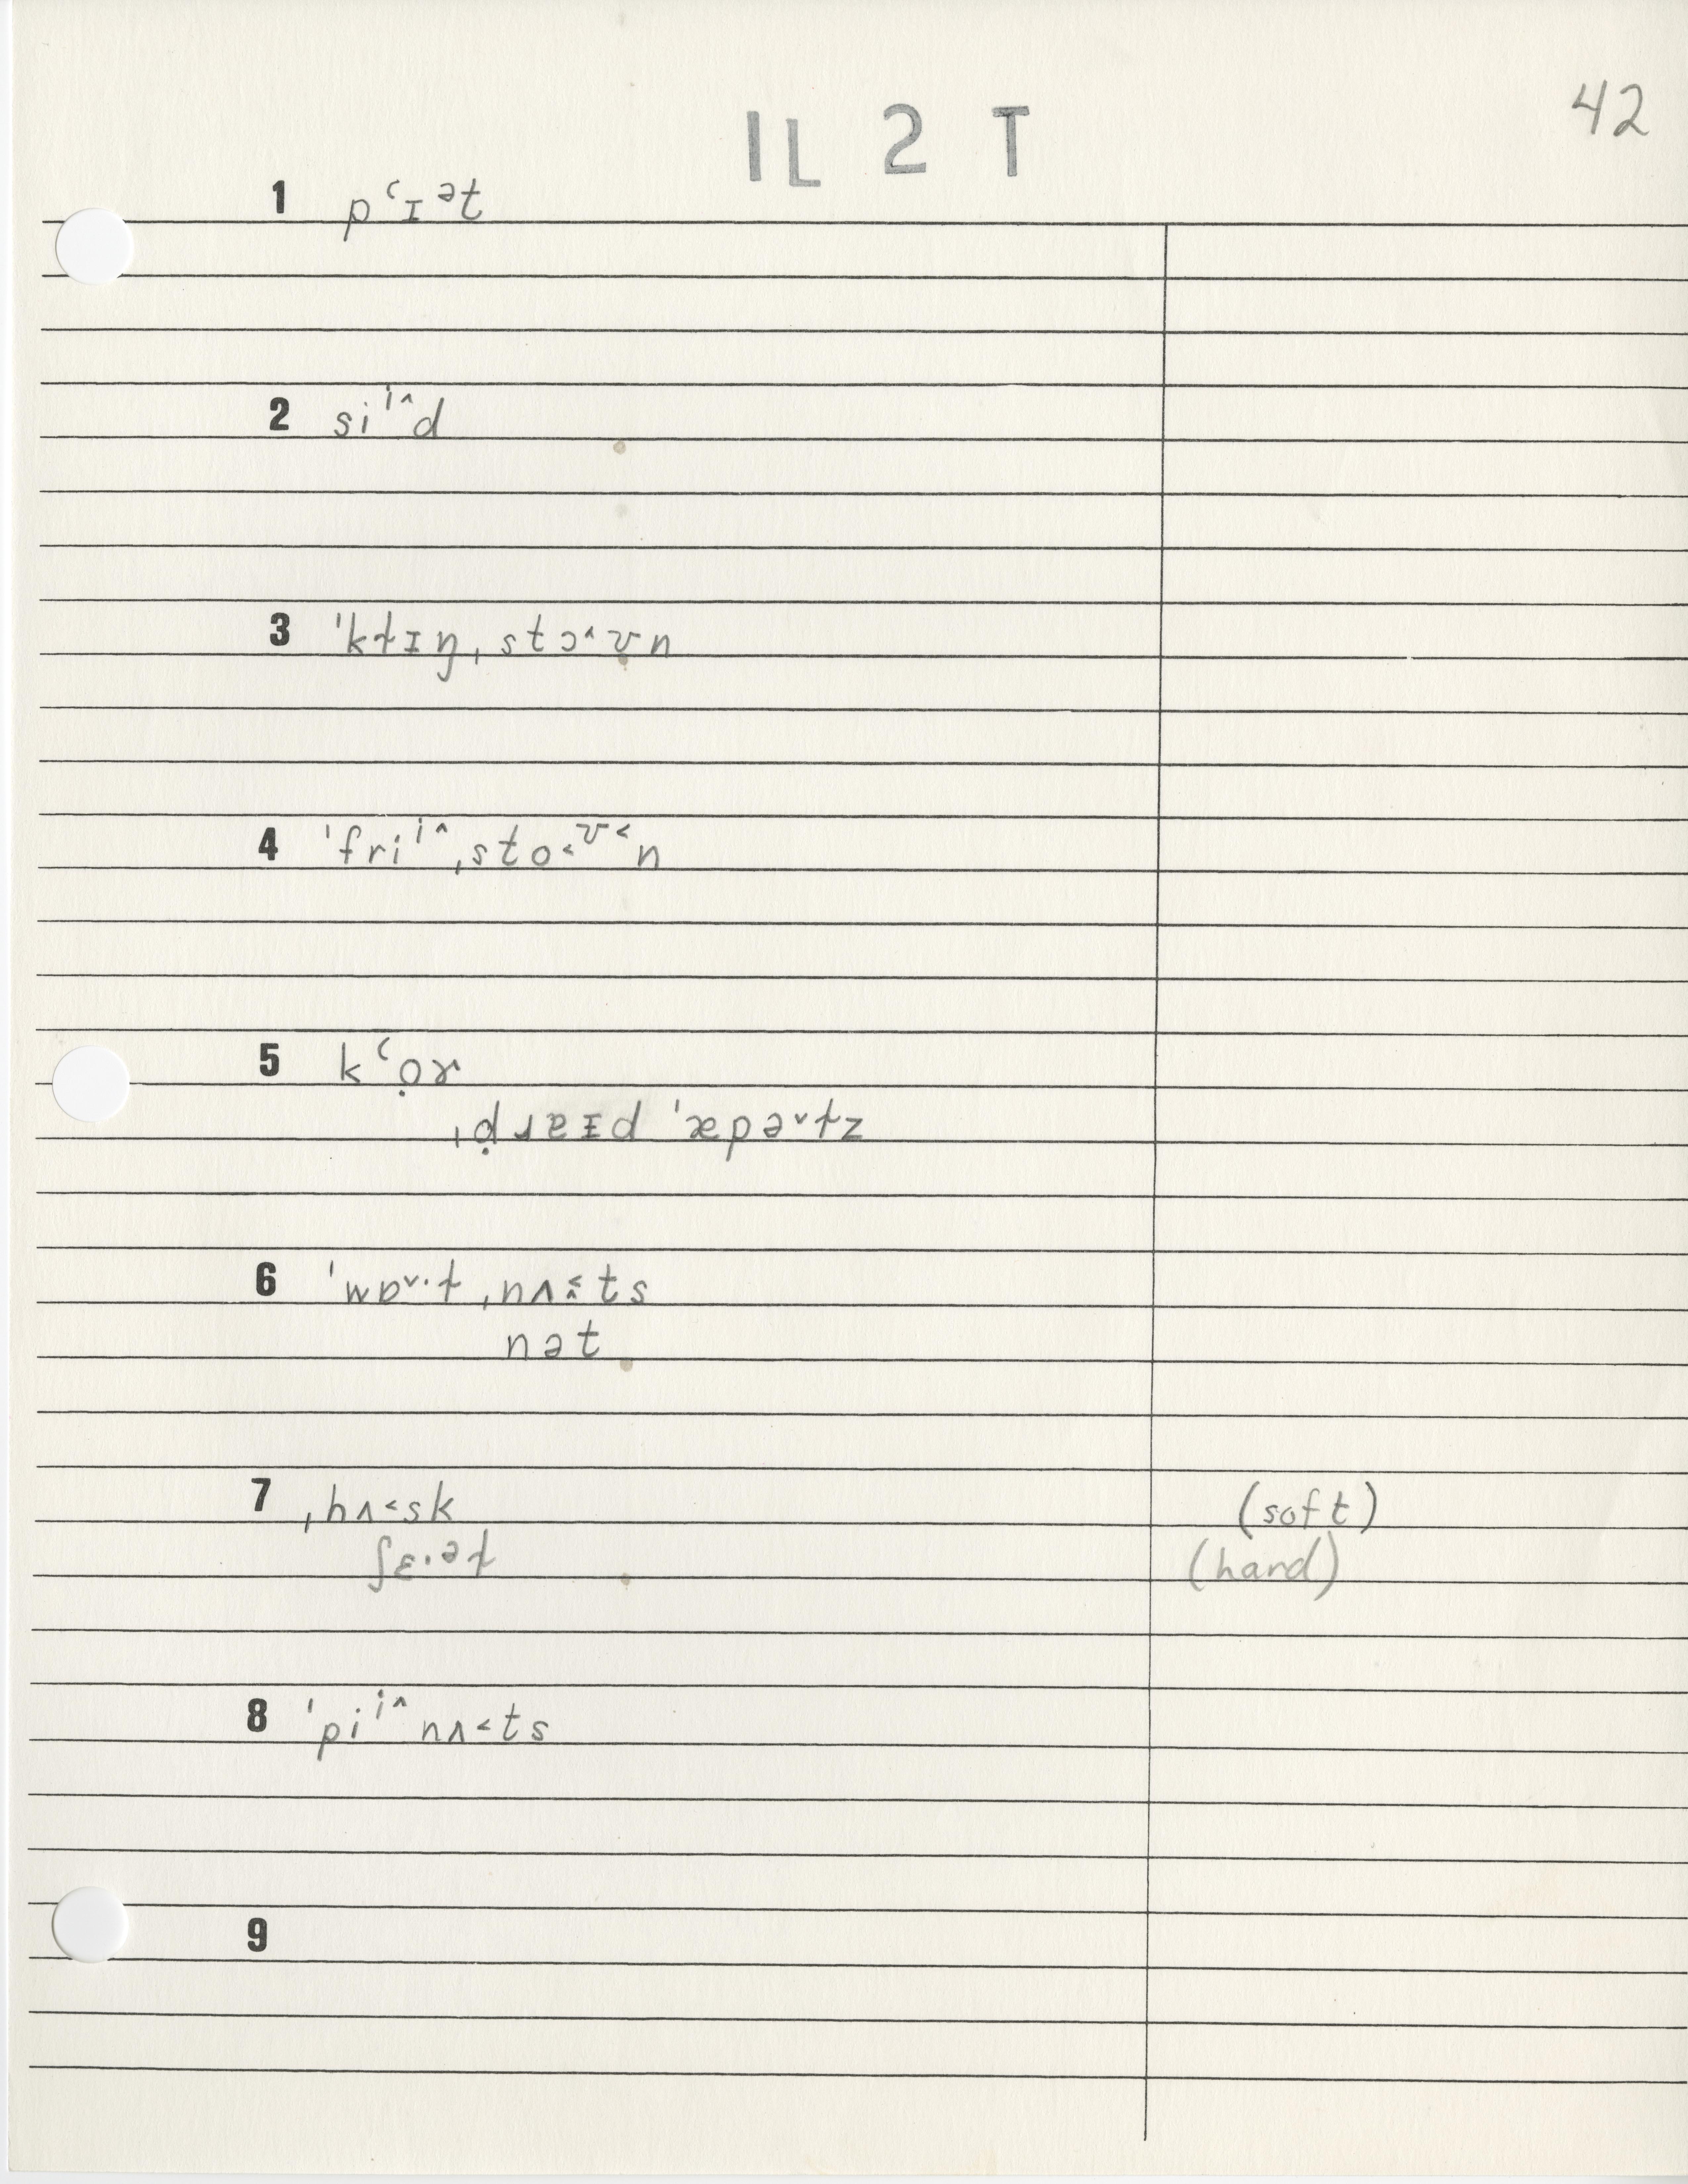 42
IL 2 T
1 pʿɪᵊt
2 siⁱ^d
3 ˈkɫɪŋˌstɔ^ʊn
4 ˈfriⁱ^ˌsto˂ᶷ˂n
5 kʿọɤ
ˌḍɹɐɪd ˈæpə˅ɫz
6 ˈwɒ˅·ɫˌnʌ˂̭ts
nət
7 ˌhʌ˂sk (soft)
ʃɛ·ᵊɫ (hard)
8 ˈpiⁱ^nʌ˂ts
9